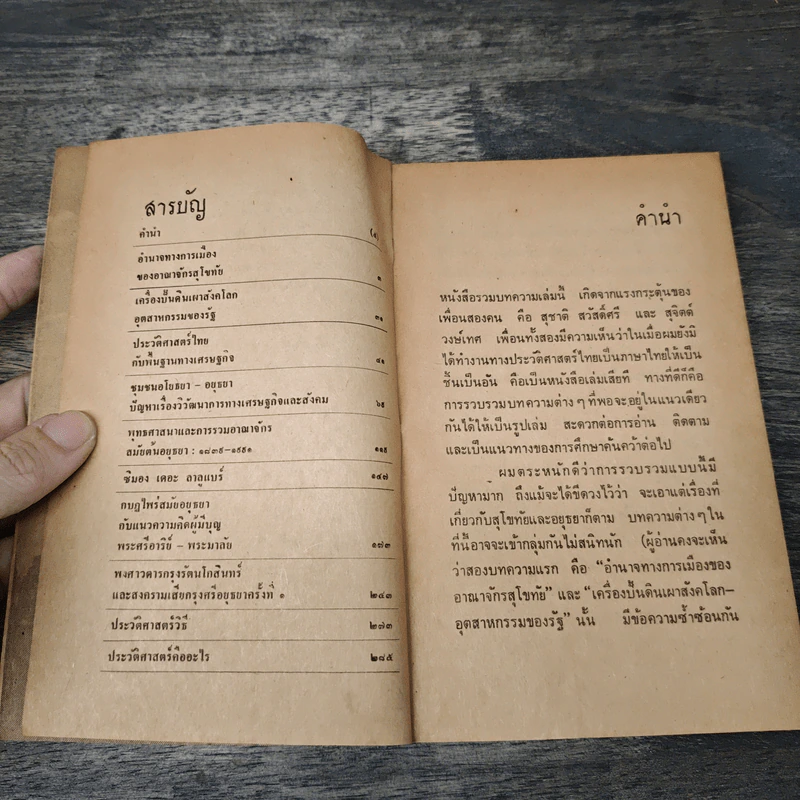 สารบัญ
คำนำ (๕)
อำนาจทางการเมือง
ของอาณาจักรสุโขทัย ๑
เครื่องปั้นดินเผาสังคโลก
อุตสาหกรรมของรัฐ ๓๑
ประวัติศาสตร์ไทย
กับพื้นฐานทางเศรษฐกิจ ๔๑
ชุมชนอโยธยา – อยุธยา
ปัญหาเรื่องวิวัฒนาการทางเศรษฐกิจและสังคม ๖๕
พุทธศาสนาและการรวมอาณาจักร
สมัยต้นอยุธยา : ๑๘๙๔–๑๙๙๑ ๑๑๕
ซิมอง เดอะ ลาลูแบร์ ๑๔๗
กบฏไพร่สมัยอยุธยา
กับแนวความคิดผู้มีบุญ
พระศรีอาริย์ – พระมาลัย ๑๗๓
พงศาวดารกรุงรัตนโกสินทร์
และสงครามเสียกรุงศรีอยุธยาครั้งที่ ๑ ๒๔๓
ประวัติศาสตร์วิธี ๒๗๓
ประวัติศาสตร์คืออะไร ๒๘๕
คำนำ
หนังสือรวมบทความเล่มนี้ เกิดจากแรงกระตุ้นของ
เพื่อนสองคน คือ สุชาติ สวัสดิ์ศรี และ สุจิตต์
วงษ์เทศ เพื่อนทั้งสองมีความเห็นว่าในเมื่อผมยังมิ
ได้ทำงานทางประวัติศาสตร์ไทยเป็นภาษาไทยให้เป็น
ชิ้นเป็นอัน คือเป็นหนังสือเล่มเสียที ทางที่ดีก็คือ
การรวบรวมบทความต่างๆ ที่พอจะอยู่ในแนวเดียว
กันได้ให้เป็นรูปเล่ม สะดวกต่อการอ่าน ติดตาม
และเป็นแนวทางของการศึกษาค้นคว้าต่อไป
ผมตระหนักดีว่าการรวบรวมแบบนี้มี
ปัญหามาก ถึงแม้จะได้ขีดวงไว้ว่า จะเอาแต่เรื่องที่
เกี่ยวกับสุโขทัยและอยุธยาก็ตาม บทความต่างๆ ใน
ที่นี้อาจจะเข้ากลุ่มกันไม่สนิทนัก (ผู้อ่านคงจะเห็น
ว่าสองบทความแรก คือ “อำนาจทางการเมืองของ
อาณาจักรสุโขทัย” และ “เครื่องปั้นดินเผาสังคโลก–
อุตสาหกรรมของรัฐ” นั้น มีข้อความซ้ำซ้อนกัน